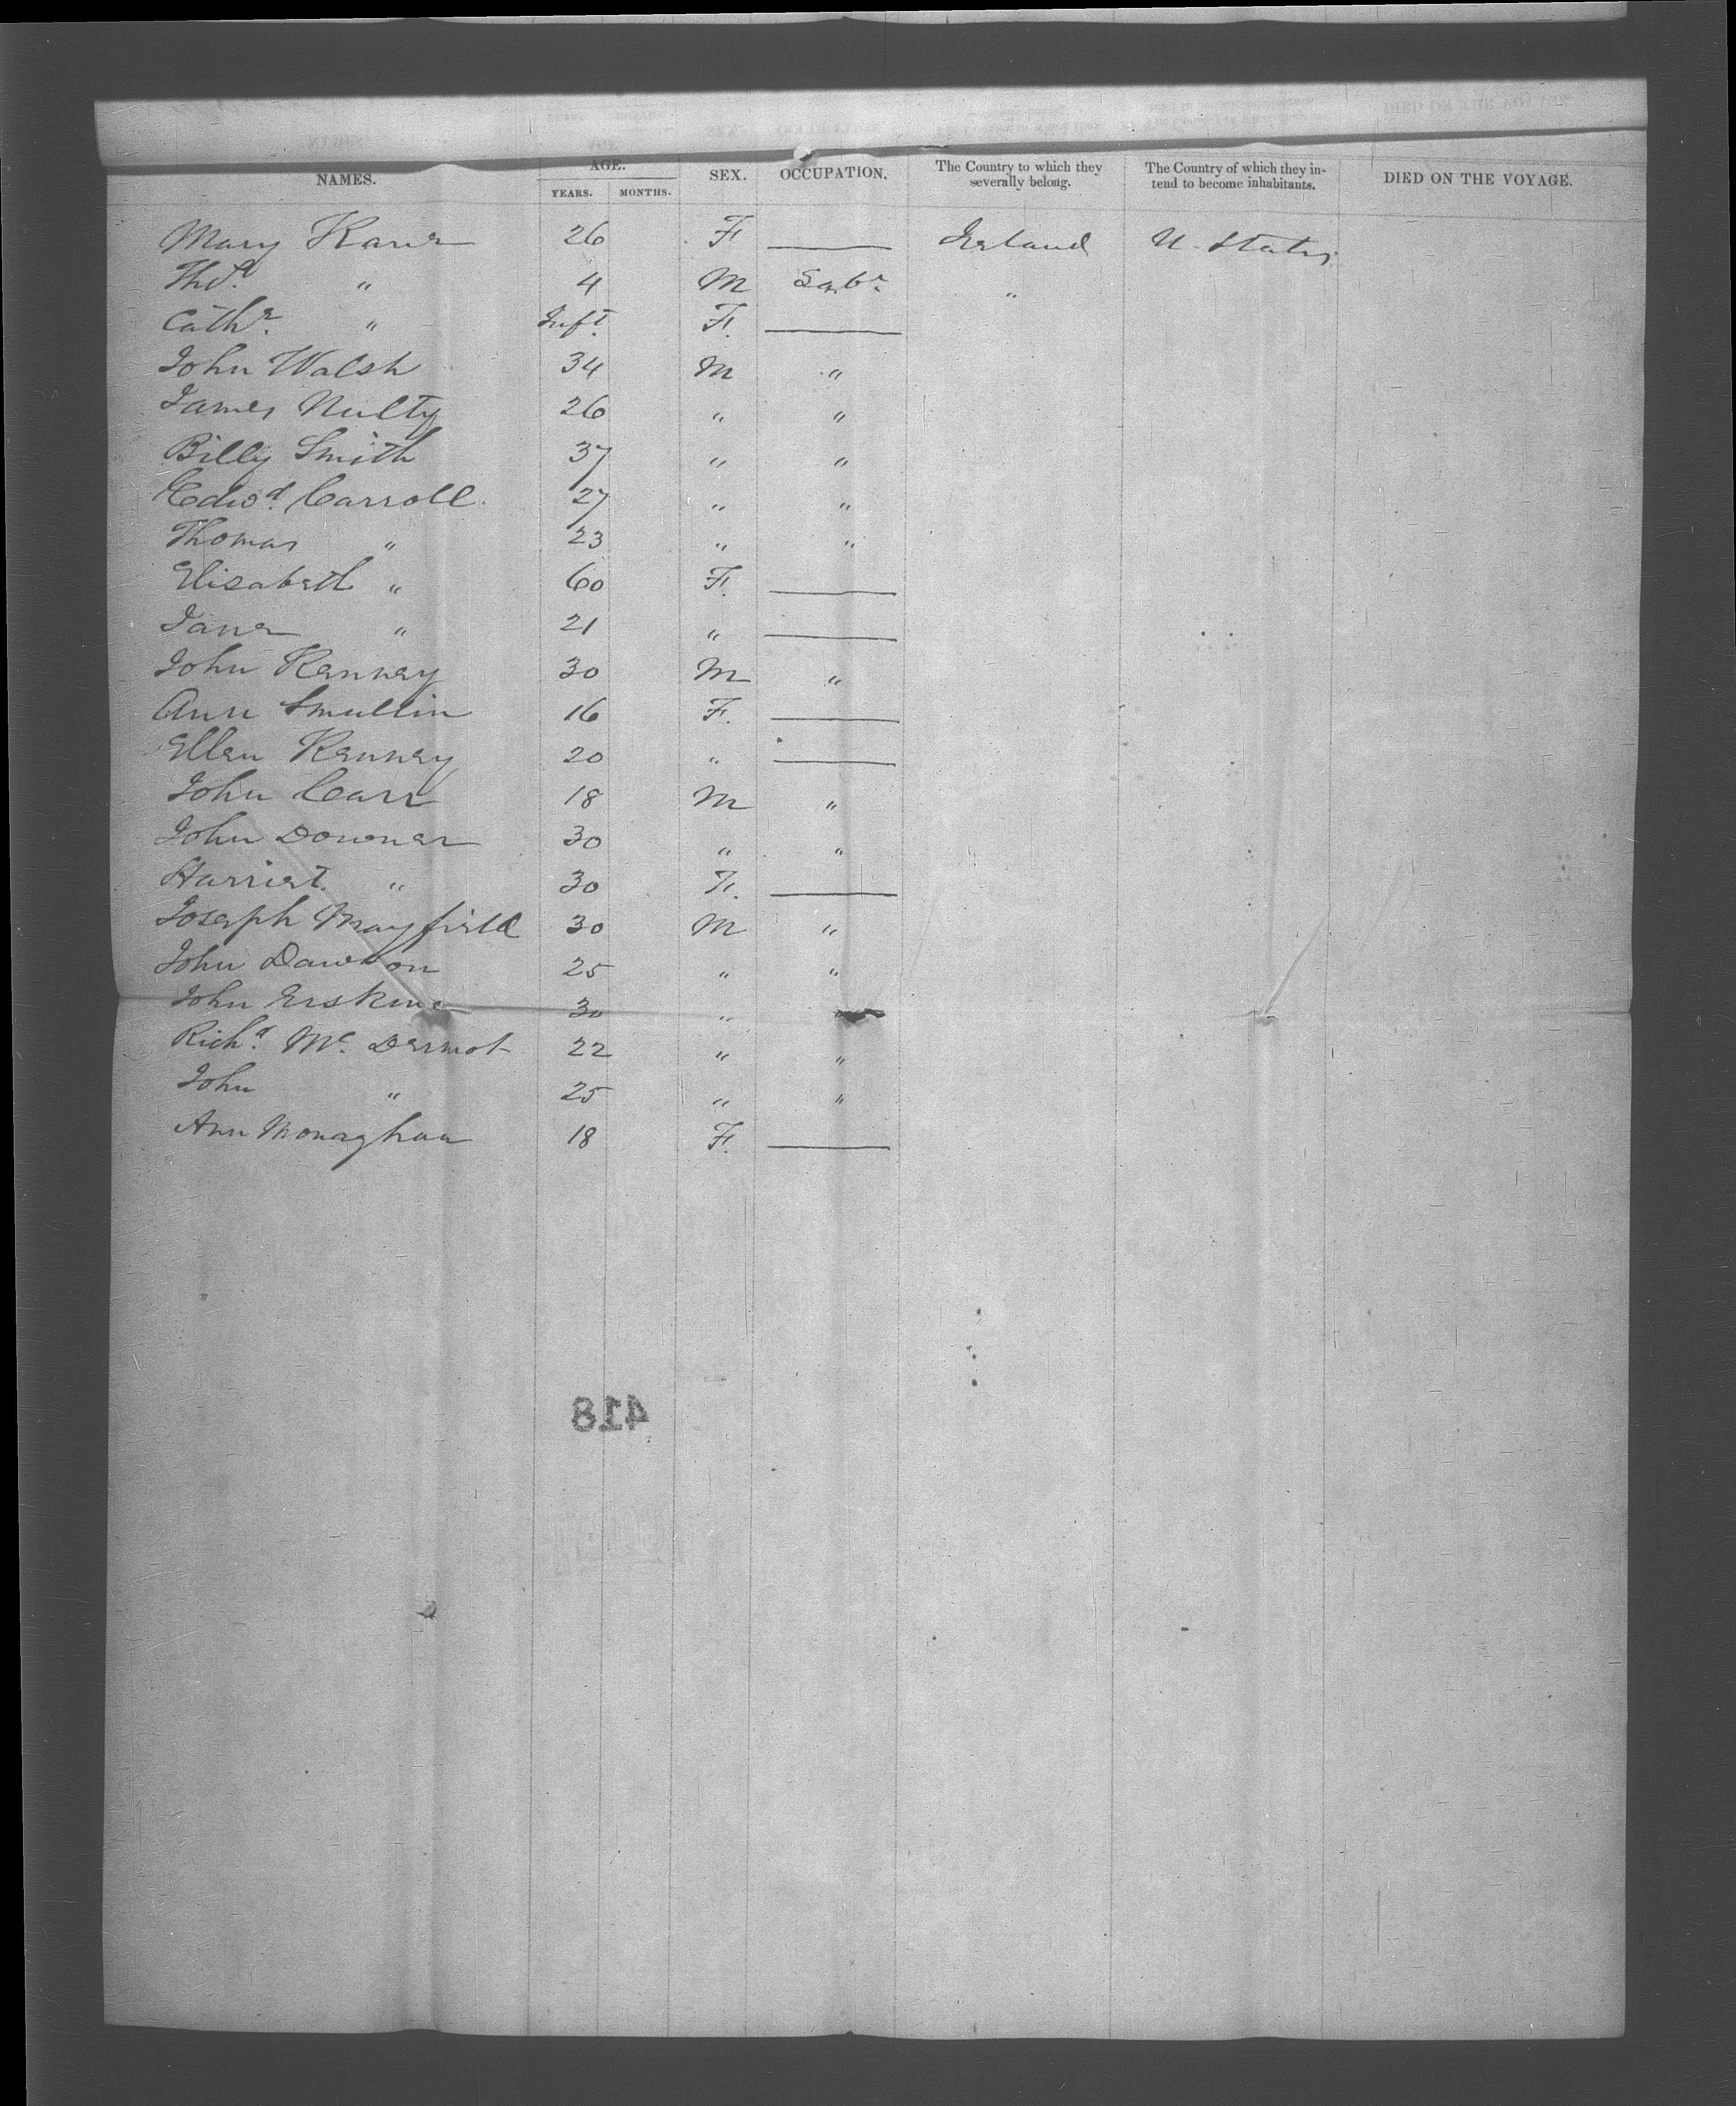 NAMES. AGE. SEX. OCCUPATION. The Country to which they severally belong. The Country of which they intend to become inhabitants. DIED ON THE VOYAGE.
YEARS. MONTHS.
Mary Kane 26 F — Ireland U. States
Thos. " 4 M Labr. "
Cathe. " Inft. F. —
John Walsh 34 M "
James Nulty 26 " "
Billy Smith 37 " "
Edwd. Carroll 27 " "
Thomas " 23 " "
Elisabeth " 60 F. —
Jane " 21 " —
John Kenney 30 M "
Ann Smullin 16 F. —
Ellen Kenney 20 " —
John Carr 18 M "
John Downer 30 " "
Harriet " 30 F. —
Joseph Mayfield 30 M "
John Dawson 25 " "
John Erskine 30 " "
Richd. Mc. Dermot 22 " "
John " 25 " "
Ann Monaghan 18 F. —
418